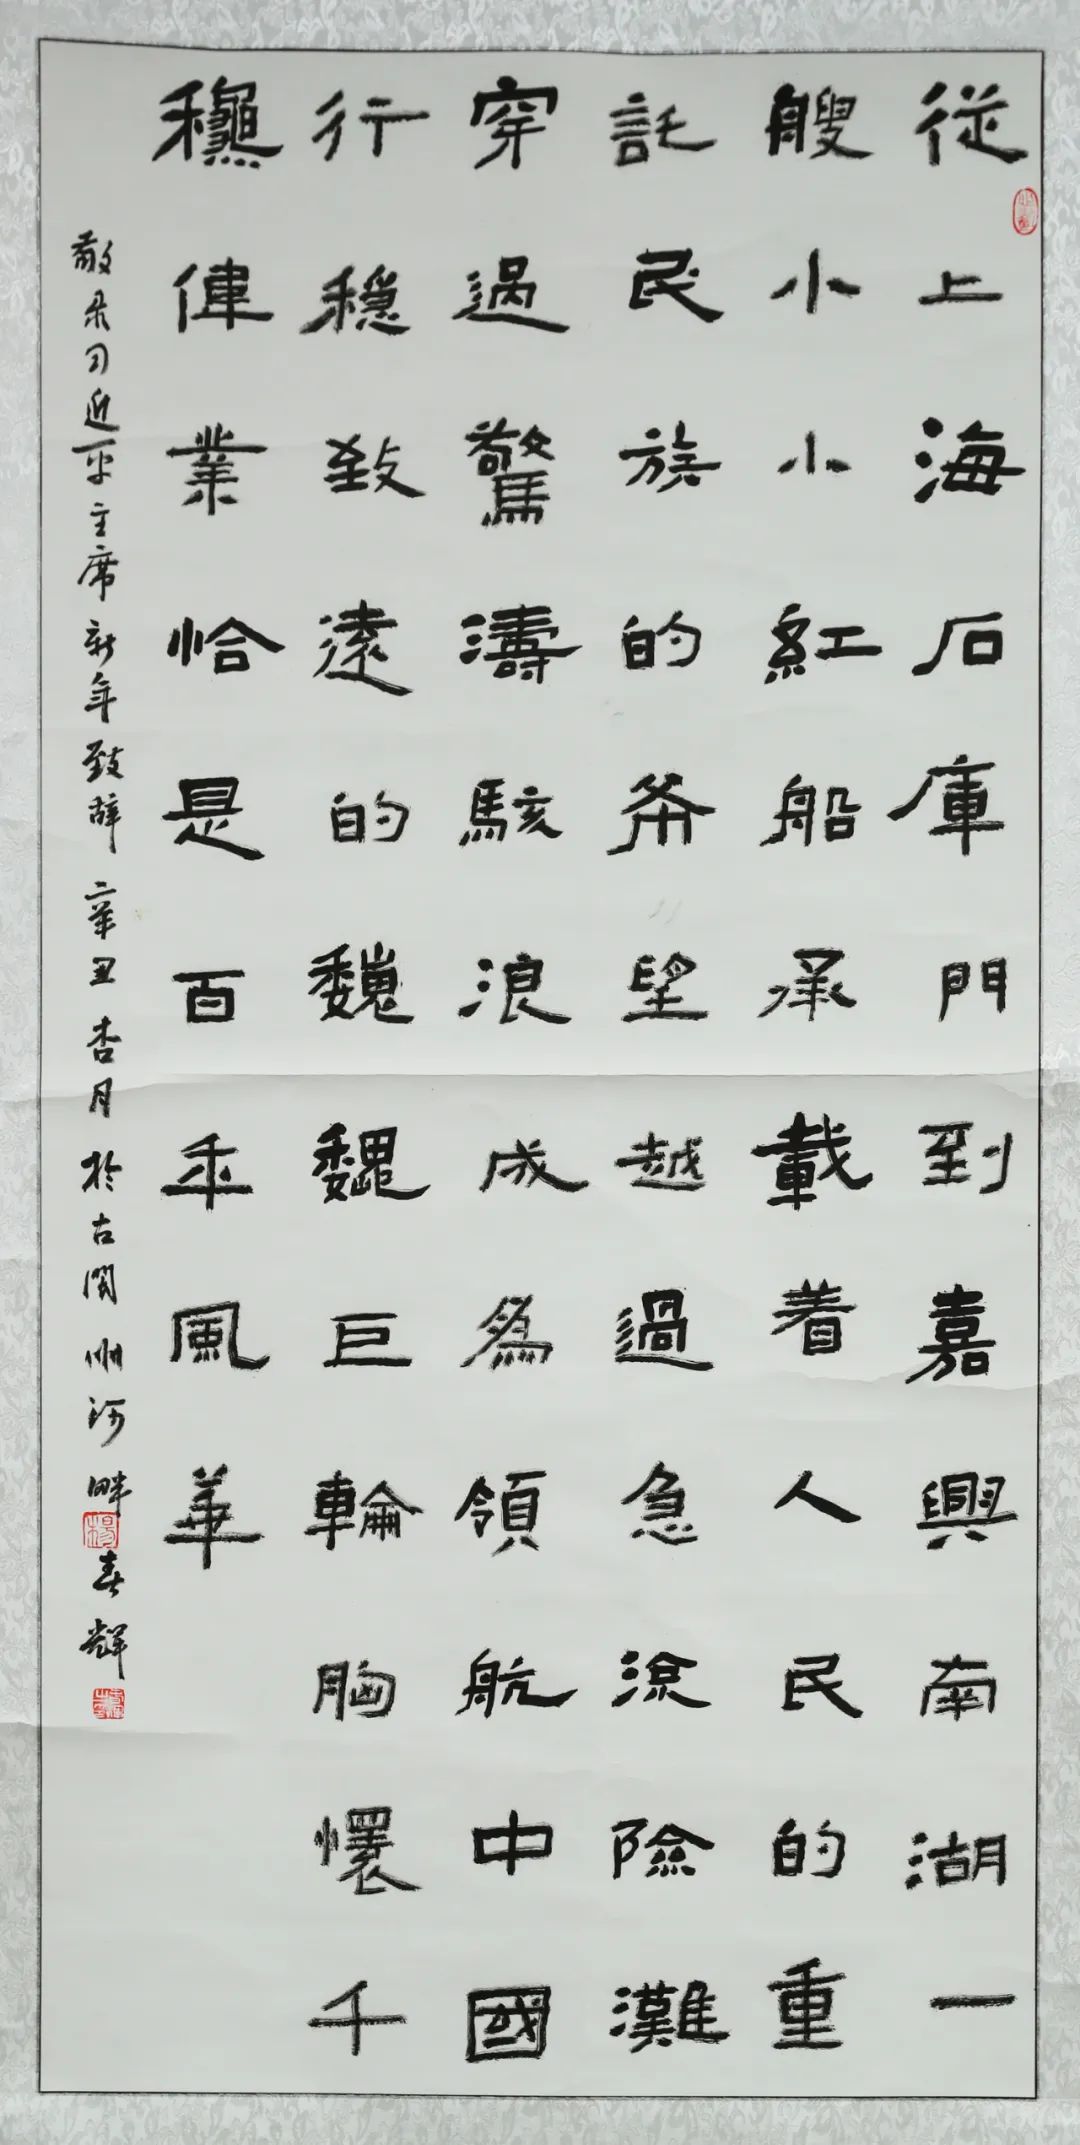 從上海石庫門到嘉興南湖一
艘小小紅船承載着人民的重
託民族的希望越過急流險灘
穿過驚濤駭浪成爲領航中國
行穩致遠的巍巍巨輪胸懷千
龝偉業恰是百年風華
敬录习近平主席新年致辞 辛丑杏月於古河畔春輝
楊